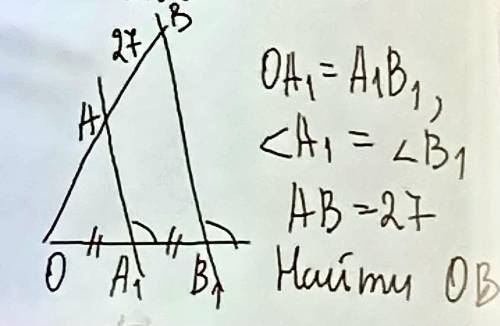 B
27
A
O
A₁
B₁
OA₁ = A₁B₁,
∠A₁ = ∠B₁
AB = 27
Найти OB